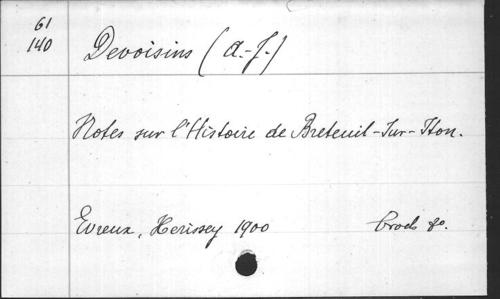 61
140
Devoisins (A.-J.)
Notes sur l'Histoire de Breteuil-Sur-Iton.
Evreux, Herissey 1900 broch 8o.